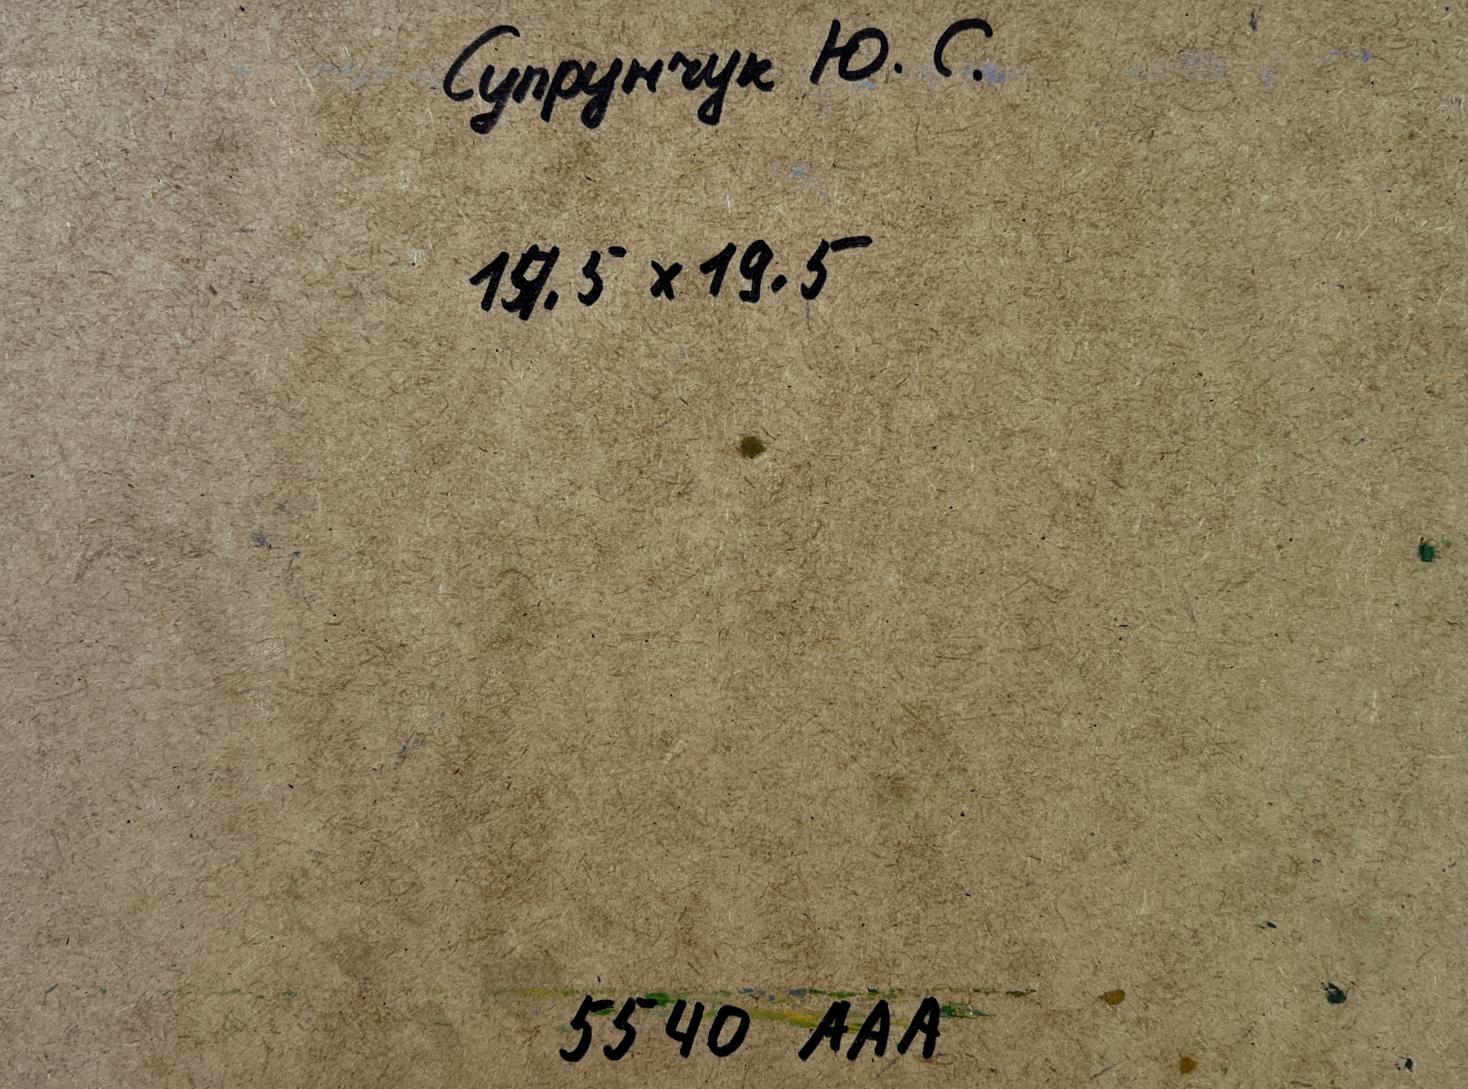 Супрунчук Ю. С.
x 19.5
5540 AAA